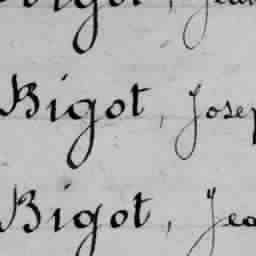 Bigot, Jean
Bigot, Josep
Bigot, Jea